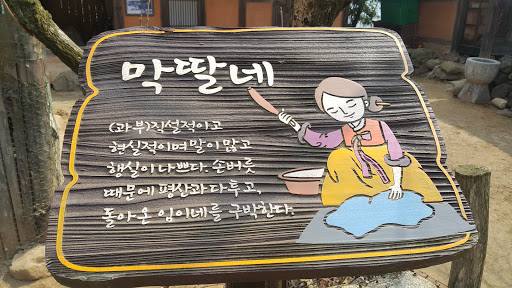 막딸네
(과부)직설적이고
형실적이며 말이 많고
행실이 나쁘다. 손버릇
때문에 평산과 다투고,
돌아온 임이네를 구박한다.